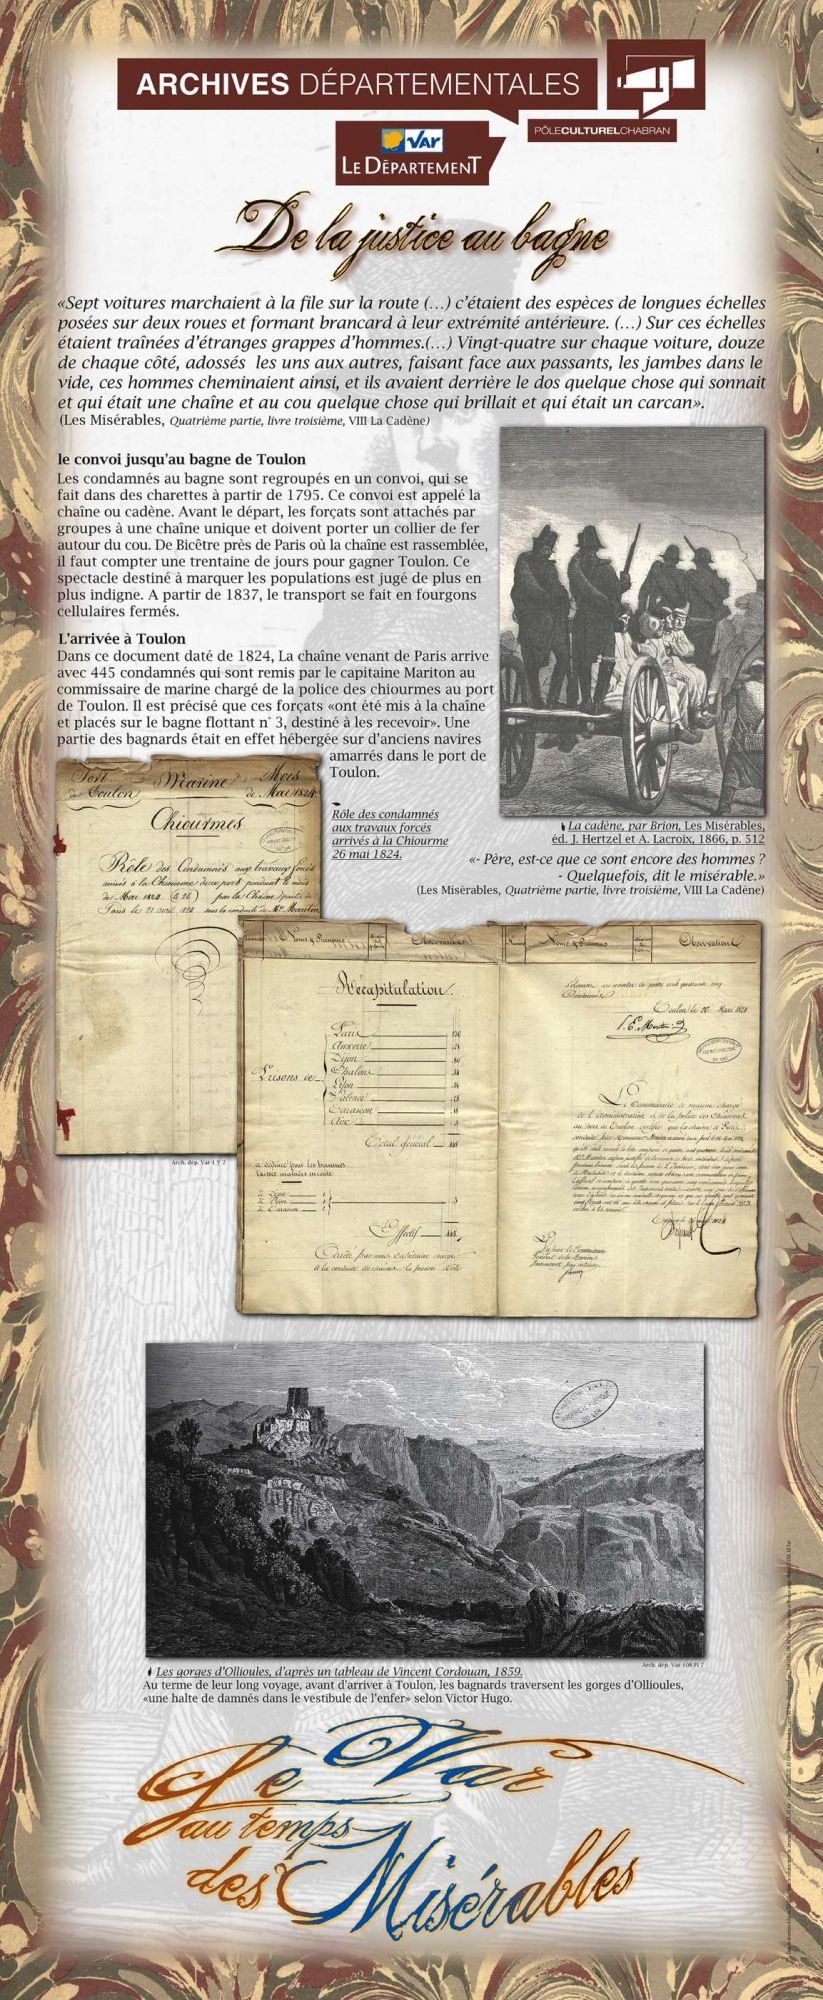 ARCHIVES DÉPARTEMENTALES
PÔLECULTURELCHABRAN
VAR
LE DÉPARTEMENT
De la justice au bagne
«Sept voitures marchaient à la file sur la route (…) c'étaient des espèces de longues échelles
posées sur deux roues et formant brancard à leur extrémité antérieure. (…) Sur ces échelles
étaient traînées d'étranges grappes d'hommes.(…) Vingt-quatre sur chaque voiture, douze
de chaque côté, adossés les uns aux autres, faisant face aux passants, les jambes dans le
vide, ces hommes cheminaient ainsi, et ils avaient derrière le dos quelque chose qui sonnait
et qui était une chaîne et au cou quelque chose qui brillait et qui était un carcan».
(Les Misérables, Quatrième partie, livre troisième, VIII La Cadène)
le convoi jusqu'au bagne de Toulon
Les condamnés au bagne sont regroupés en un convoi, qui se
fait dans des charettes à partir de 1795. Ce convoi est appelé la
chaîne ou cadène. Avant le départ, les forçats sont attachés par
groupes à une chaîne unique et doivent porter un collier de fer
autour du cou. De Bicêtre près de Paris où la chaîne est rassemblée,
il faut compter une trentaine de jours pour gagner Toulon. Ce
spectacle destiné à marquer les populations est jugé de plus en
plus indigne. A partir de 1837, le transport se fait en fourgons
cellulaires fermés.
L'arrivée à Toulon
Dans ce document daté de 1824, La chaîne venant de Paris arrive
avec 445 condamnés qui sont remis par le capitaine Mariton au
commissaire de marine chargé de la police des chiourmes au port
de Toulon. Il est précisé que ces forçats «ont été mis à la chaîne
et placés sur le bagne flottant n° 3, destiné à les recevoir». Une
partie des bagnards était en effet hébergée sur d'anciens navires
amarrés dans le port de
Toulon.
Rôle des condamnés
aux travaux forcés
arrivés à la Chiourme
26 mai 1824.
La cadène, par Brion, Les Misérables,
éd. J. Hertzel et A. Lacroix, 1866, p. 512
«- Père, est-ce que ce sont encore des hommes ?
- Quelquefois, dit le misérable.»
(Les Misérables, Quatrième partie, livre troisième, VIII La Cadène)
Port
de Toulon
Marine
Mois
de Mai 1824
Chiourmes
Rôle des Condamnés aux travaux forcés
arrivés à la Chiourme de ce port pendant le mois
de Mai 1824 (le 26) par la Chaîne partie de
Paris le 21 avril 1824 sous la conduite de Mr.
Arch. dép. Var 1 Y 2
Noms & Prénoms
Observations
Noms & Prénoms
Observations
Récapitulation.
Prisons de
Paris
Auxerre
Dijon
Chalons
Lyon
Valence
Tarascon
Aix
Total général
à déduire pour les hommes
laissés malades en route
à Dijon
à Lyon
à Tarascon
Effectif
Arrêté par nous Capitaine chargé
de la conduite des chaînes le présent Rôle
Toulon le 26 Mai 1824
Le Commissaire de marine chargé
de l'administration et de la police des Chiourmes
au port de Toulon certifie que la chaîne de Paris
Vu par le Commissaire
Général de la Marine
Les gorges d'Ollioules, d'après un tableau de Vincent Cordouan, 1859.
Arch. dép. Var 108 FI 7
Au terme de leur long voyage, avant d'arriver à Toulon, les bagnards traversent les gorges d'Ollioules,
«une halte de damnés dans le vestibule de l'enfer» selon Victor Hugo.
Le Var
au temps
des Misérables